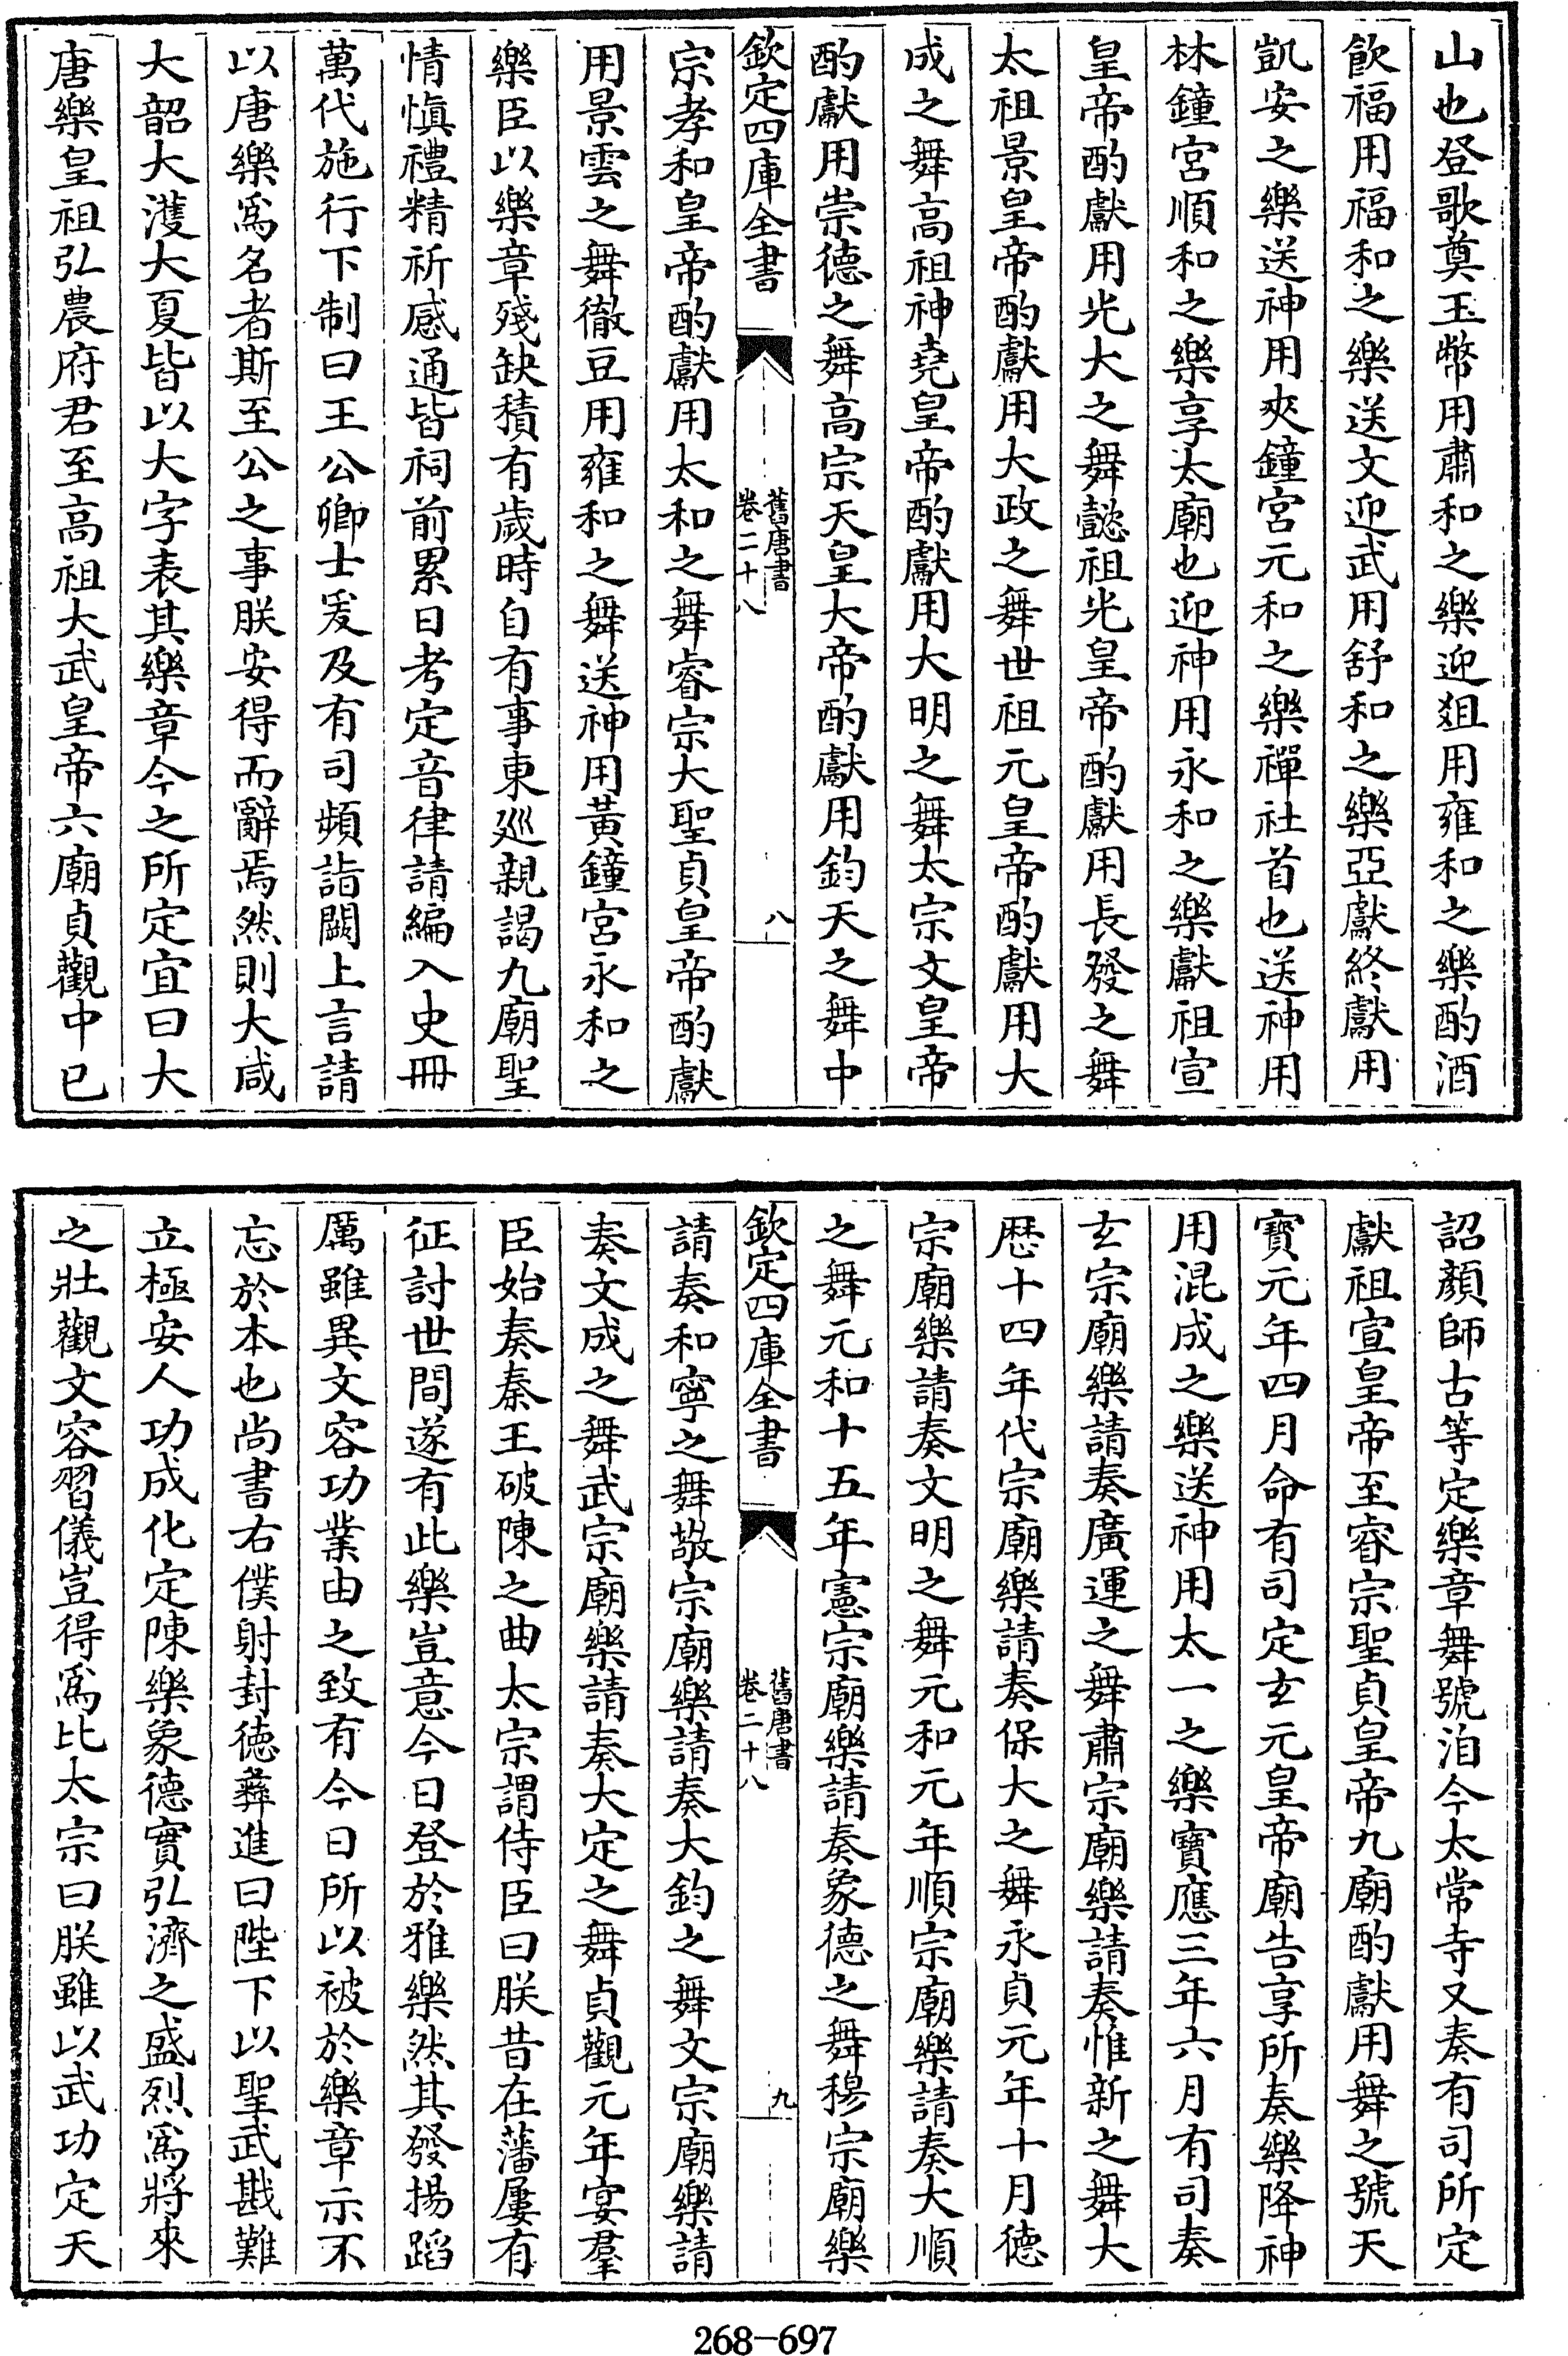 山也登歌奠玉幣用肅和之樂迎爼用雍和之樂酌酒
飲福用福和之樂送文迎武用舒和之樂亞獻終獻用
凱安之樂送神用夾鐘宮元和之樂禪社首也送神用
林鐘宮順和之樂享太廟也迎神用永和之樂獻祖宣
皇帝酌獻用光大之舞懿祖光皇帝酌獻用長發之舞
太祖景皇帝酌獻用大政之舞世祖元皇帝酌獻用大
成之舞高祖神堯皇帝酌獻用大明之舞太宗文皇帝
酌獻用崇德之舞高宗天皇大帝酌獻用鈞天之舞中
欽定四庫全書
舊唐書
卷二十八
八
宗孝和皇帝酌獻用太和之舞睿宗大聖貞皇帝酌獻
用景雲之舞徹豆用雍和之舞送神用黃鐘宮永和之
樂臣以樂章殘缺積有歲時自有事東廵親謁九廟聖
情慎禮精祈感通皆祠前累日考定音律請編入史冊
萬代施行下制曰王公卿士爰及有司頻詣闕上言請
以唐樂爲名者斯至公之事朕安得而辭焉然則大咸
大韶大濩大夏皆以大字表其樂章今之所定宜曰大
唐樂皇祖弘農府君至高祖大武皇帝六廟貞觀中已
詔顏師古等定樂章舞號洎今太常寺又奏有司所定
獻祖宣皇帝至睿宗聖貞皇帝九廟酌獻用舞之號天
寶元年四月命有司定玄元皇帝廟告享所奏樂降神
用混成之樂送神用太一之樂寶應三年六月有司奏
玄宗廟樂請奏廣運之舞肅宗廟樂請奏惟新之舞大
歴十四年代宗廟樂請奏保大之舞永貞元年十月德
宗廟樂請奏文明之舞元和元年順宗廟樂請奏大順
之舞元和十五年憲宗廟樂請奏象德之舞穆宗廟樂
欽定四庫全書
舊唐書
卷二十八
九
請奏和寧之舞敬宗廟樂請奏大鈞之舞文宗廟樂請
奏文成之舞武宗廟樂請奏大定之舞貞觀元年宴羣
臣始奏秦王破陳之曲太宗謂侍臣曰朕昔在藩屢有
征討世間遂有此樂豈意今日登於雅樂然其發揚蹈
厲雖異文容功業由之致有今日所以被於樂章示不
忘於本也尚書右僕射封德彝進曰陛下以聖武戡難
立極安人功成化定陳樂象德實弘濟之盛烈爲將來
之壯觀文容習儀豈得爲比太宗曰朕雖以武功定天
268-697